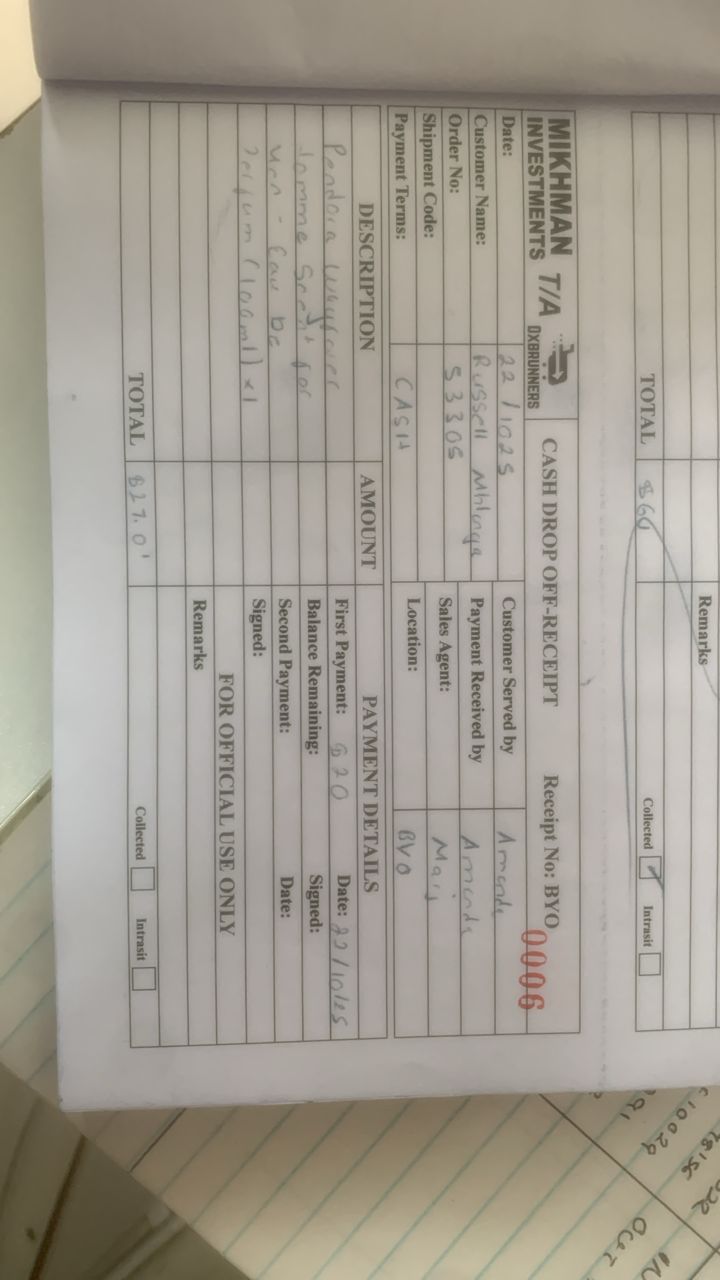 Remarks
TOTAL $60 Collected Intrasit
MIKHMAN INVESTMENTS T/A DXBRUNNERS
CASH DROP OFF-RECEIPT Receipt No: BYO 0006
Date: 22/1025 Customer Served by Amanda
Customer Name: Russell Mhlanga Payment Received by Amanda
Order No: 53305 Sales Agent:
Shipment Code: Location: BYO
Payment Terms: CASH
DESCRIPTION AMOUNT PAYMENT DETAILS
Pandora First Payment: $20 Date: 22/10/25
for Balance Remaining: Signed:
Men - Eau De Second Payment: Date:
(100ml) x1 Signed:
FOR OFFICIAL USE ONLY
Remarks
TOTAL $27.0 Collected Intrasit